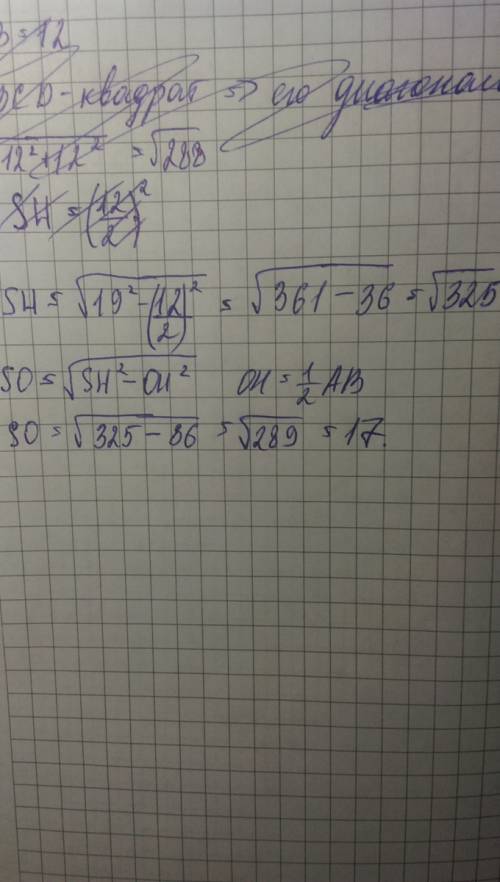 B = 12
BCD - квадрат ⇒ его диагонали
√12² + 12² = √288
SH = (12/2)²
SH = √19² - (12/2)² = √361 - 36 = √325
SO = √SH² - OH² OH = 1/2 AB
SO = √325 - 36 = √289 = 17.